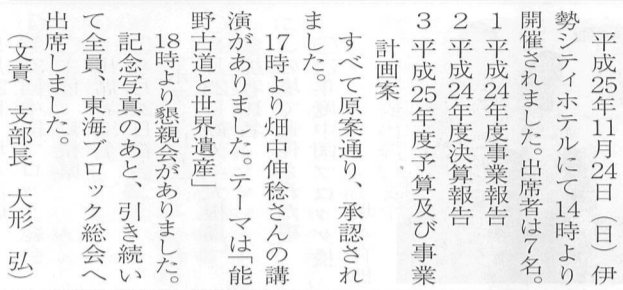 平成25年11月24日（日）伊
勢シティホテルにて14時より
開催されました。出席者は7名。
1 平成24年度事業報告
2 平成24年度決算報告
3 平成25年度予算及び事業
計画案
すべて原案通り、承認され
ました。
17時より畑中伸稔さんの講
演がありました。テーマは「能
野古道と世界遺産」
18時より懇親会がありました。
記念写真のあと、引き続い
て全員、東海ブロック総会へ
出席しました。
（文責　支部長　大形　弘）